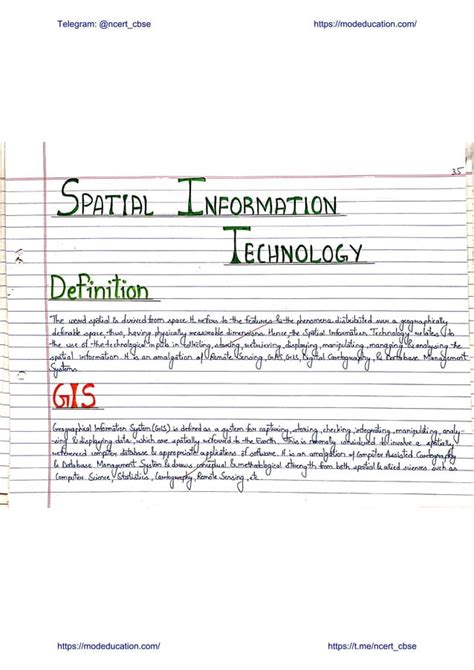 Telegram: @ncert_cbse https://modeducation.com/
35
SPATIAL INFORMATION
TECHNOLOGY
Definition
The word spatial is derived from space. It refers to the features & the phenomena distributed over a geographically
definable space, thus, having physically measurable dimensions. Hence, the Spatial Information Technology relates to
the use of the technological inputs in collecting, storing, retrieving, displaying, manipulating, managing & analysing the
spatial information. It is an amalgation of Remote Sensing, GPS, GIS, Digital Cartography, & Database Management
Systems.
GIS
Geographical Information System (GIS) is defined as a system for capturing, storing, checking, integrating, manipulating, analy-
sing & displaying data, which are spatially referenced to the Earth. This is normally considered to involve a spatially
referenced computer database & appropriate applications software. It is an amalgation of Computer Assisted Cartography
& Database Management System & draws conceptual & methodological strength from both spatial & allied sciences such as
Computer Science, Statistics, Cartography, Remote Sensing, etc.
https://modeducation.com/ https://t.me/ncert_cbse